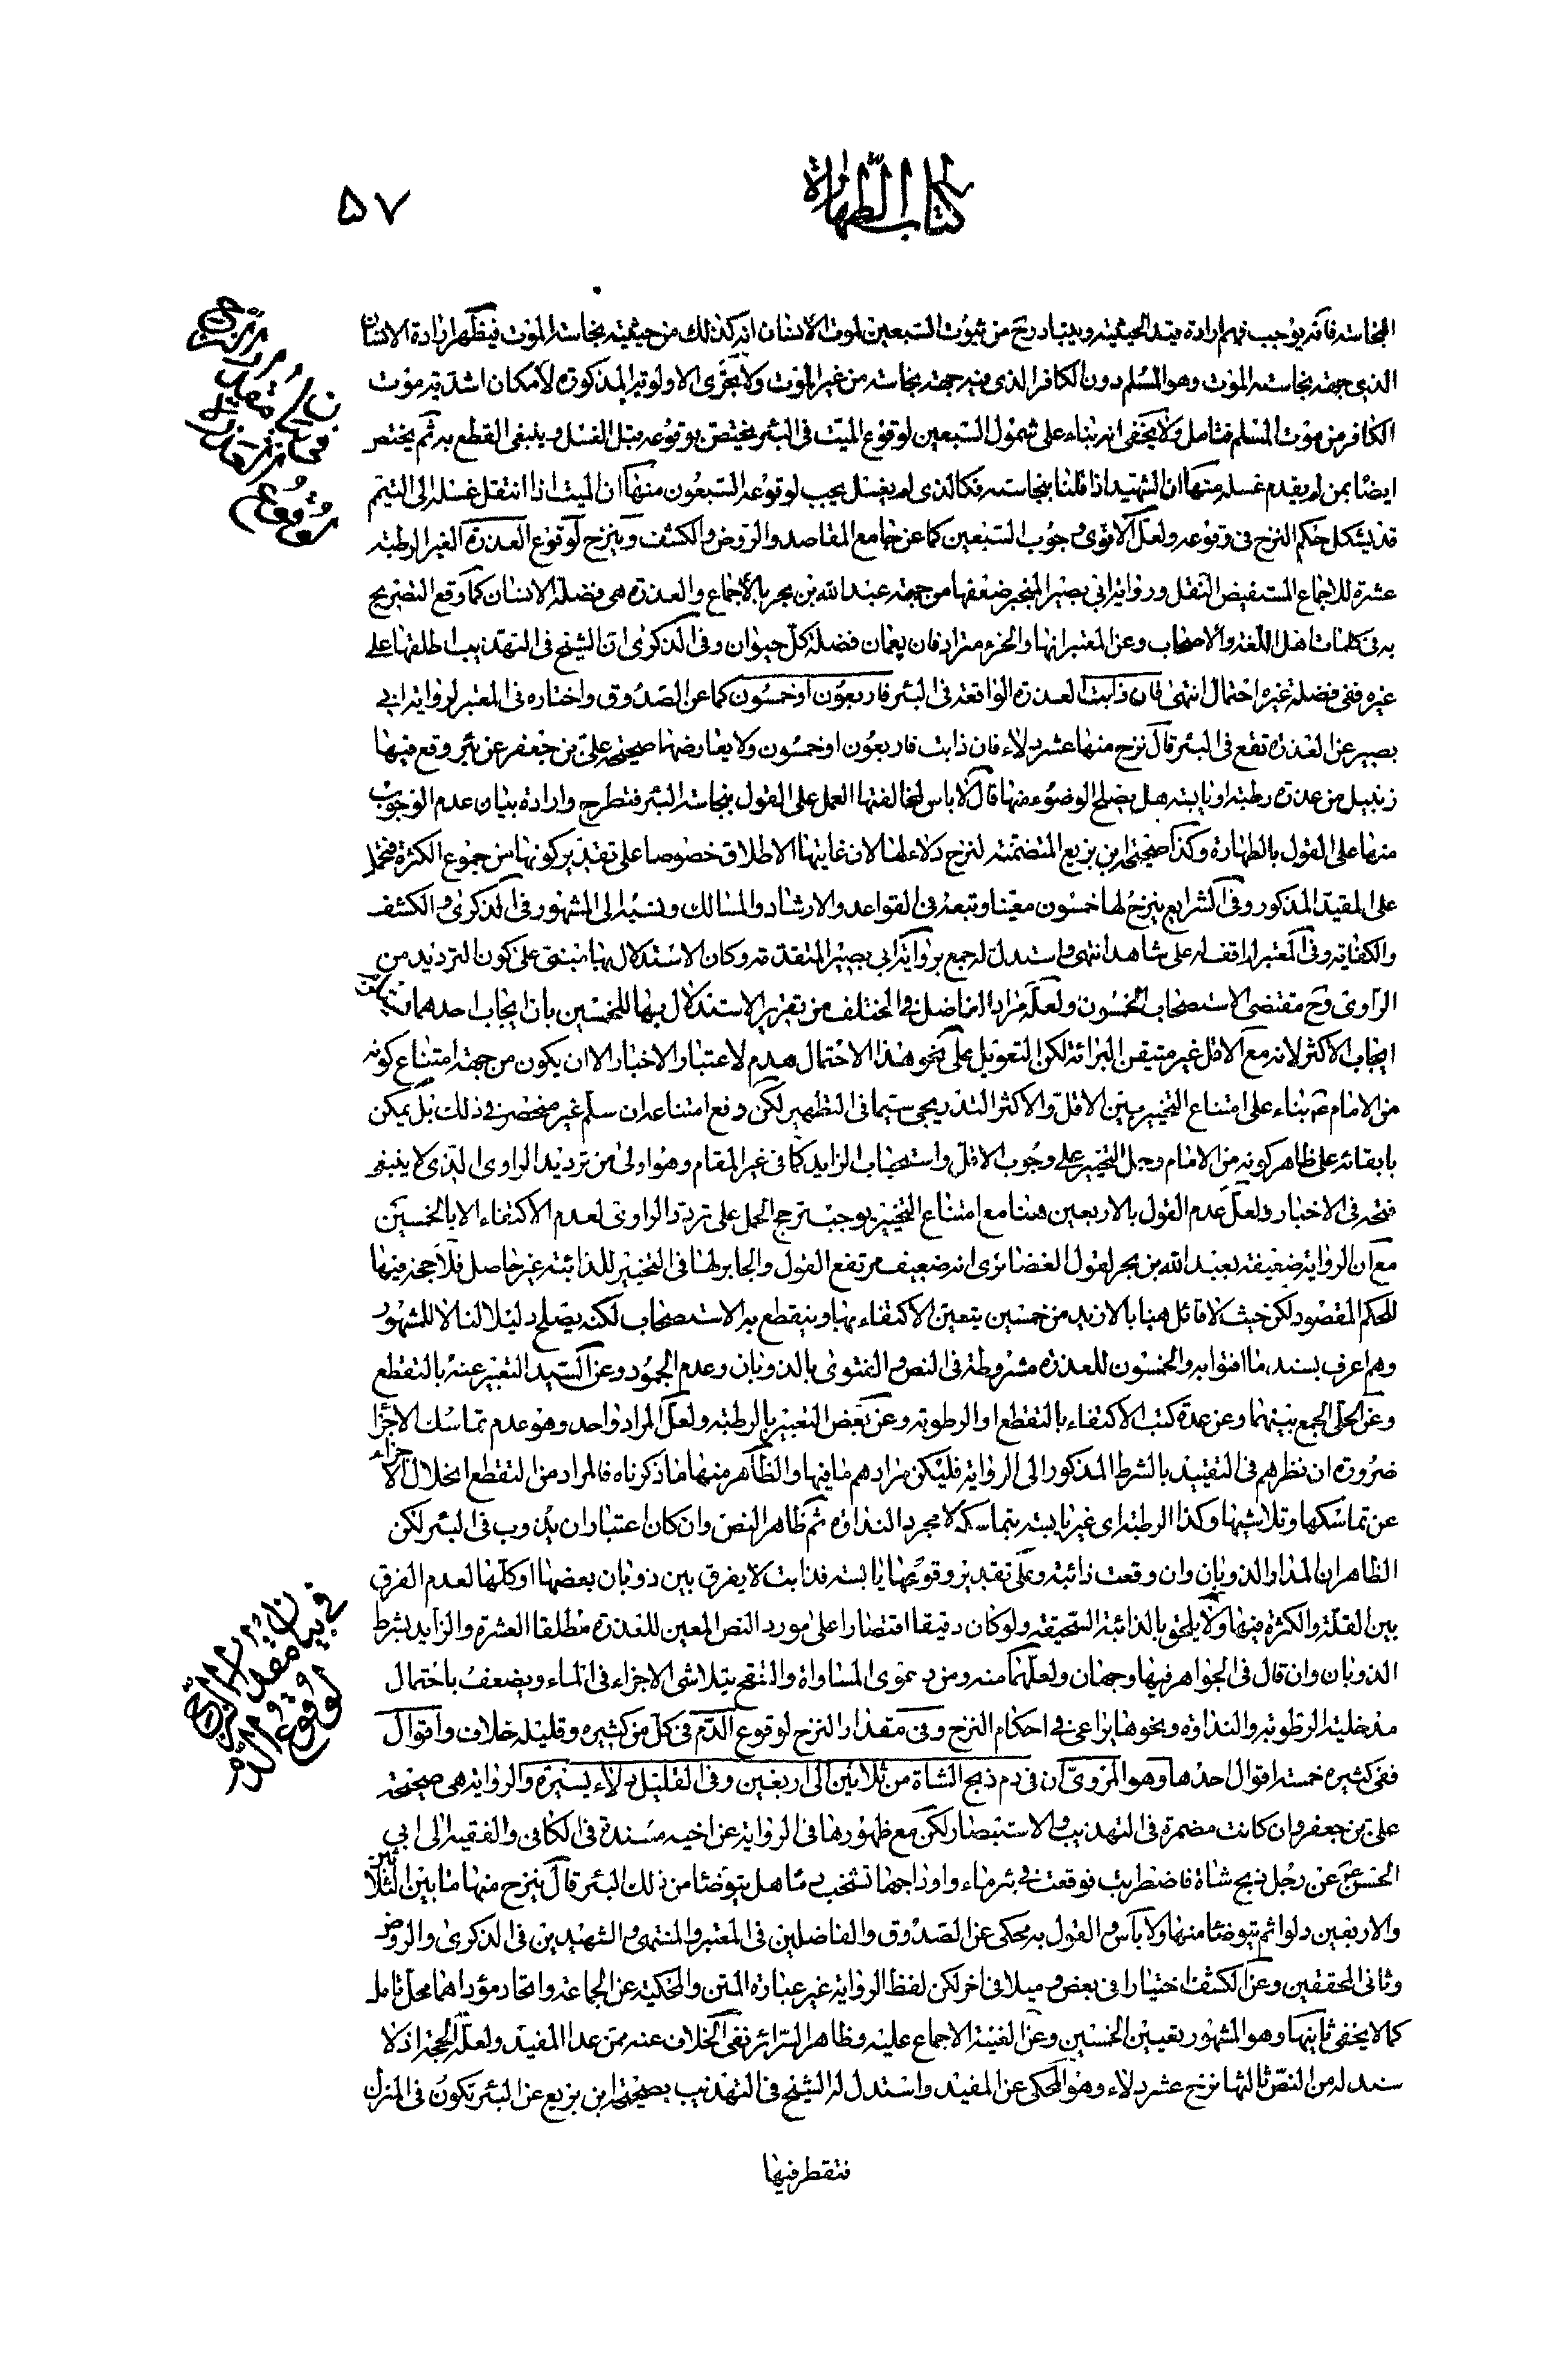 كتاب الطهارة
۵۷
النجاسة فانه يوجب فهم ارادة قيد الحيثية ويتبادر ح من ثبوت السبعين لموت الانسان انه كذلك من حيثية نجاسة الموت فيظهر ارادة الانسان
الذى جهة نجاسته الموت وهو المسلم دون الكافر الذى فيه جهة نجاسة من غير الموت ولا يجرى الاولوية المذكورة لامكان اشدية موت
الكافر من موت المسلم فتامل ولا يخفى انه بناء على شمول السبعين لوقوع الميت فى البئر يختص بوقوعه قبل الغسل وينبغى القطع به ثم يختص
ايضا بمن لم يقدم غسله منها ان الشهيد اذا قلنا بنجاسته فكالذى لم يغسل يجب لوقوعه السبعون منها ان الميت اذا انتقل غسله الى التيمم
قد يشكل حكم النزح فى وقوعه ولعل الاقوى وجوب السبعين كما عن جامع المقاصد والروض والكشف وينزح لوقوع العذرة الغير الرطبة
عشرة للاجماع المستفيض النقل ورواية ابى بصير المنجبر ضعفها من جهة عبد الله بن بحر بالاجماع والعذرة هى فضلة الانسان كما وقع التصريح
به فى كلمات اهل اللغة والاصحاب وعن المعتبر انها والخرء مترادفان يعمان فضلة كل حيوان وفى الذكرى ان الشيخ فى التهذيب اطلقها على
غيره ففى فضلة غيره احتمال انتهى فان ذابت العذرة الواقعة فى البئر فاربعون او خمسون كما عن الصدوق واختاره فى المعتبر لرواية ابى
بصير عن العذرة تقع فى البئر قال نزح منها عشر دلاء فان ذابت فاربعون او خمسون ولا يعارضها صحيحة على بن جعفر عن بئر وقع فيها
زنبيل من عذرة رطبة او يابسة هل يصلح الوضوء منها قال لا باس لمخالفتها العمل على القول بنجاسة البئر فتطرح وارادة بيان عدم الوجوب
منها على القول بالطهارة وكذا صحيحة ابن بزيع المتضمنة لنزح دلاء لها لان غايتها الاطلاق خصوصا على تقدير كونها من جموع الكثرة فتحمل
على المقيد المذكور وفى الشرايع ينزح لها خمسون معينا وتبعه فى القواعد والارشاد والمسالك ونسبه الى المشهور فى الذكرى والكشف
والكفاية وفى المعتبر لم اقف له على شاهد انتهى واستدل له جمع برواية ابى بصير المتقدمة وكان الاستدلال بها مبتنى على كون الترديد من
الراوى وح مقتضى الاستصحاب الخمسون ولعله مراد الفاضل فى المختلف من تقرير الاستدلال بها للخمسين بان ايجاب احدهما
ايجاب الاكثر لانه مع الاقل غير متيقن البرائة لكن التعويل على نحو هذا الاحتمال هدم لاعتبار الاخبار الا ان يكون من جهة امتناع كونه
من الامام ع بناء على امتناع التخيير بين الاقل والاكثر التدريجى سيما فى التطهير لكن دفع امتناعه ان سلم غير منحصر فى ذلك بل يمكن
بابقائه على ظاهر كونه من الامام وحمل التخيير على وجوب الاقل واستحباب الزايد كما فى غير المقام وهو اولى من ترديد الراوى الذى لا ينبغى
فتحه فى الاخبار ولعل عدم القول بالاربعين هنا مع امتناع التخيير يوجب ترجح الحمل على تردد الراوى لعدم الاكتفاء الا بالخمسين
مع ان الرواية ضعيفة بعبد الله بن بحر لقول الغضائرى انه ضعيف مرتفع القول والجابر لها فى التخيير للذائبة غير حاصل فلا حجة فيها
للحكم المقصود لكن حيث لا قائل هنا بالازيد من خمسين يتعين الاكتفاء بها وينقطع به الاستصحاب لكنه يصلح دليلا لنا لا للمشهور
وهم اعرف بسند ما افتوا به والخمسون للعذرة مشروطة فى النص والفتوى بالذوبان وعدم الجمود وعن السيد التعبير عنه بالتقطع
وعن الحلى الجمع بينهما وعن عدة كتب الاكتفاء بالتقطع او الرطوبة وعن بعض التعبير بالرطبة ولعل المراد واحد وهو عدم تماسك الاجزا
ضرورة ان نظرهم فى التقييد بالشرط المذكور الى الرواية فليكن مرادهم ما فيها والظاهر منها ما ذكرناه فالمراد من التقطع انحلال الاجزاء
عن تماسكها وتلاشيها وكذا الرطبة اى غير يابسة بتماسكه لا مجرد النداوة ثم ظاهر النص وان كان اعتبار ان يذوب فى البئر لكن
الظاهر ان المدار الذوبان وان وقعت ذائبة وعلى تقدير وقوعها يابسة فذابت لا يفرق بين ذوبان بعضها او كلها لعدم الفرق
بين القلة والكثرة فيها ولا يلحق بالذائبة السحيقة ولو كان دقيقا اقتصارا على مورد النص المعين للعذرة مطلقا العشرة والزايد بشرط
الذوبان وان قال فى الجواهر فيها وجهان ولعلهما منه ومن دعوى المساواة والتنقيح بتلاشى الاجزاء فى الماء ويضعف باحتمال
مدخلية الرطوبة والنداوة ونحوها يراعى فى احكام النزح وفى مقدار النزح لوقوع الدم فى كل من كثيره وقليله خلاف واقوال
ففى كثيره خمسة اقوال احدها وهو المروى ان فى دم ذبح الشاة من ثلاثين الى اربعين وفى القليل دلاء يسيرة والرواية هى صحيحة
على بن جعفر وان كانت مضمرة فى التهذيب والاستبصار لكن مع ظهورها فى الرواية عن اخيه مسندة فى الكافى والفقيه الى ابى
الحسن ع عن رجل ذبح شاة فاضطربت فوقعت فى بئر ماء واوداجها تشخب دما هل يتوضا من ذلك البئر قال ينزح منها ما بين الثلاثين
والاربعين دلوا ثم يتوضا منها ولا باس والقول به محكى عن الصدوق والفاضلين فى المعتبر والمنتهى والشهيدين فى الذكرى والروض
وثانى المحققين وعن الكشف اختيارا فى بعض وميلا فى اخر لكن لفظ الرواية غير عبارة المتن والمحكية عن الجماعة واتحاد مؤداهما محل تامل
كما لا يخفى ثانيها وهو المشهور تعيين الخمسين وعن الغنية الاجماع عليه وظاهر السرائر نفى الخلاف عنه ممن عدا المفيد ولعله الحجة اذ لا
سند له من النص ثالثها نزح عشر دلاء وهو المحكى عن المفيد واستدل له الشيخ فى التهذيب بصحيحة ابن بزيع عن البئر تكون فى المنزل
فتقطر فيها
فى بيان مقدار
النزح
لوقوع الدم